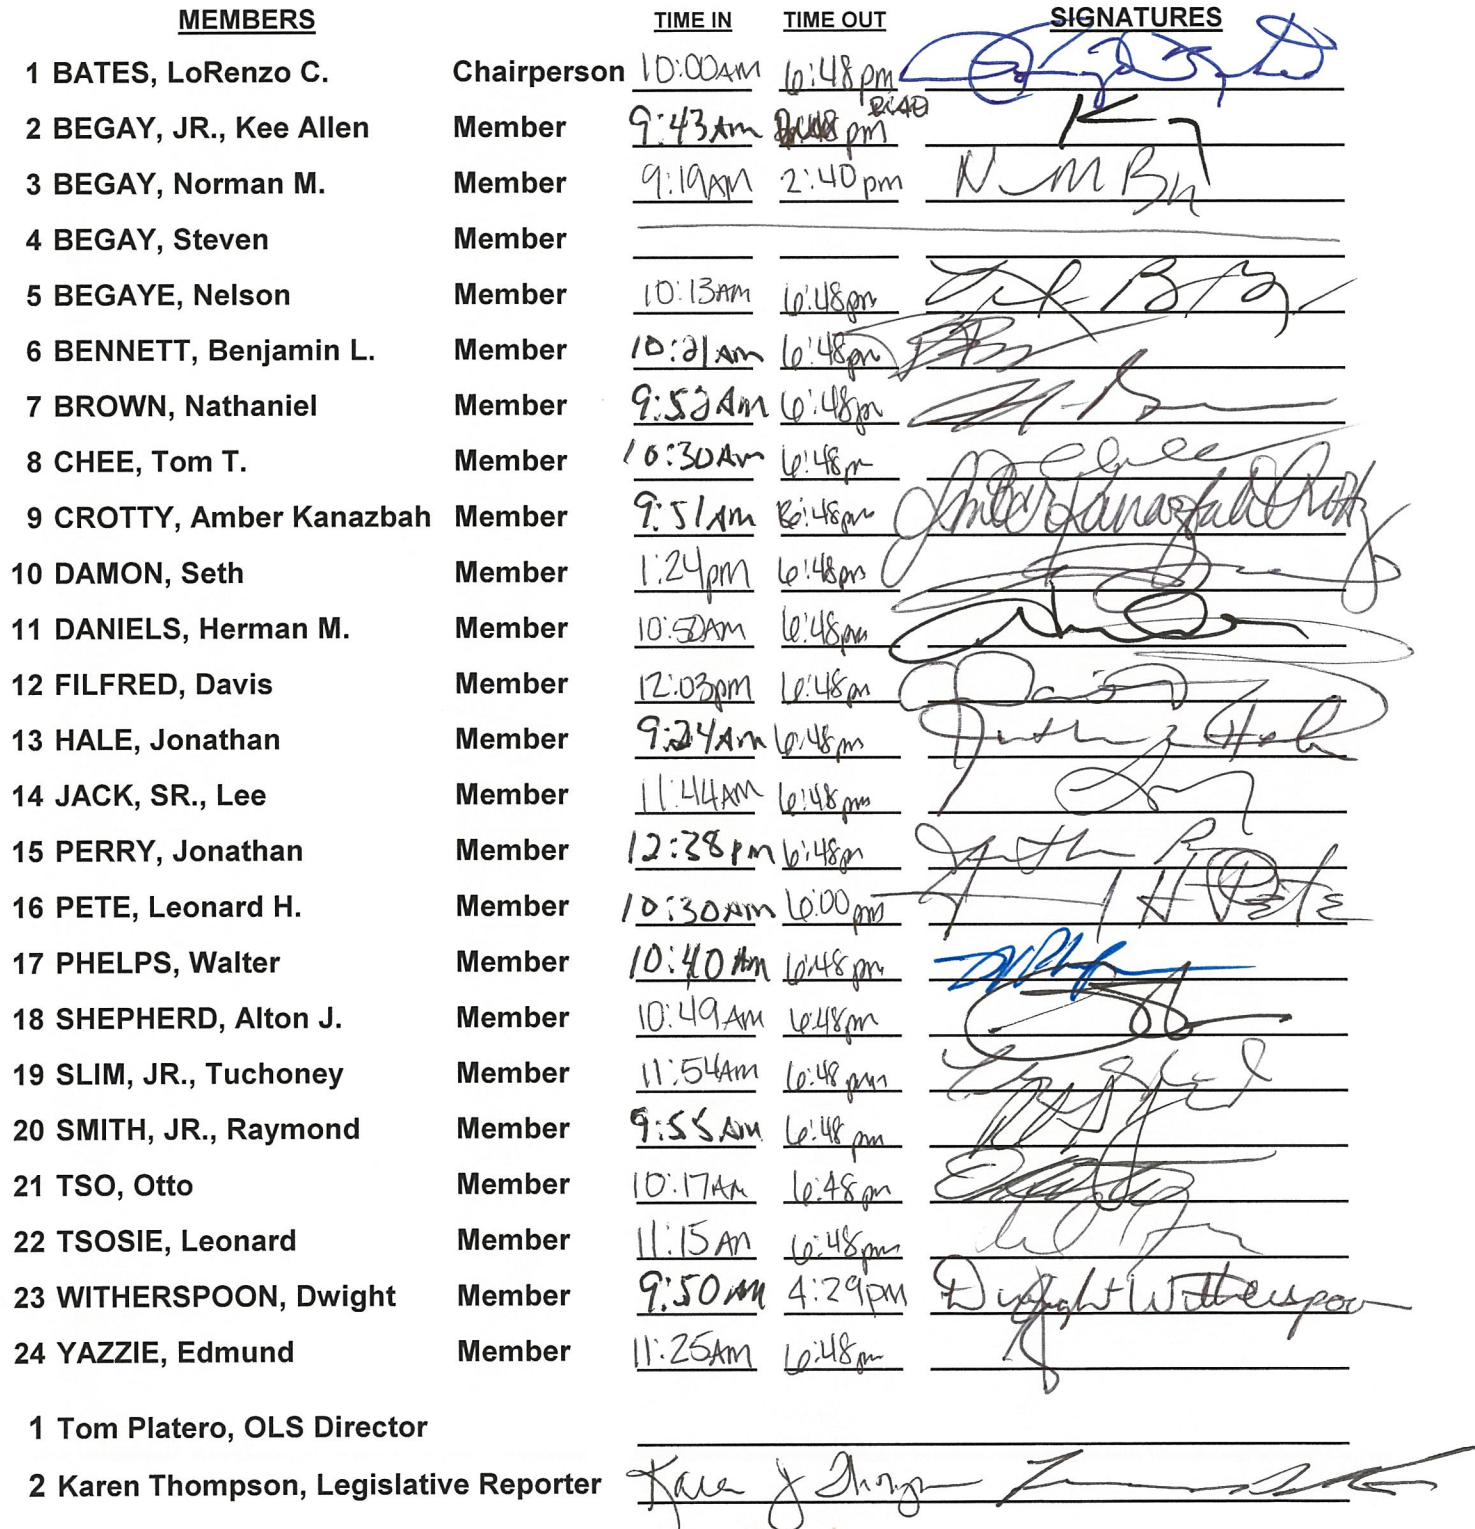 MEMBERS TIME IN TIME OUT SIGNATURES
1 BATES, LoRenzo C. Chairperson 10:00AM 6:48pm
2 BEGAY, JR., Kee Allen Member 9:43Am pm
3 BEGAY, Norman M. Member 9:19AM 2:40pm N M
4 BEGAY, Steven Member
5 BEGAYE, Nelson Member 10:13AM 6:48pm
6 BENNETT, Benjamin L. Member 10:21Am 6:48pm
7 BROWN, Nathaniel Member 9:52Am 6:48pm
8 CHEE, Tom T. Member 10:30Am 6:48pm Chee
9 CROTTY, Amber Kanazbah Member 9:51Am 6:48pm Amber Kanazbah Crotty
10 DAMON, Seth Member 1:24pm 6:48pm
11 DANIELS, Herman M. Member 10:50AM 6:48pm
12 FILFRED, Davis Member 12:03pm 6:48pm
13 HALE, Jonathan Member 9:24Am 6:48pm Jonathan Hale
14 JACK, SR., Lee Member 11:44AM 6:48pm
15 PERRY, Jonathan Member 12:38pm 6:48pm
16 PETE, Leonard H. Member 10:30Am 6:00pm H Pete
17 PHELPS, Walter Member 10:40Am 6:48pm
18 SHEPHERD, Alton J. Member 10:49AM 6:48pm
19 SLIM, JR., Tuchoney Member 11:54Am 6:48pm
20 SMITH, JR., Raymond Member 9:55Am 6:48pm
21 TSO, Otto Member 10:17AM 6:48pm
22 TSOSIE, Leonard Member 11:15Am 6:48pm
23 WITHERSPOON, Dwight Member 9:50Am 4:29pm Dwight Witherspoon
24 YAZZIE, Edmund Member 11:25AM 6:48pm
1 Tom Platero, OLS Director
2 Karen Thompson, Legislative Reporter Karen